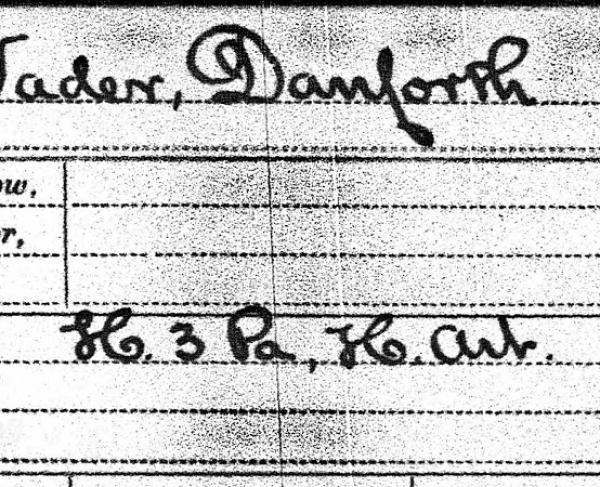 Vader, Danforth
ow,
r,
H. 3 Pa, H. Art.